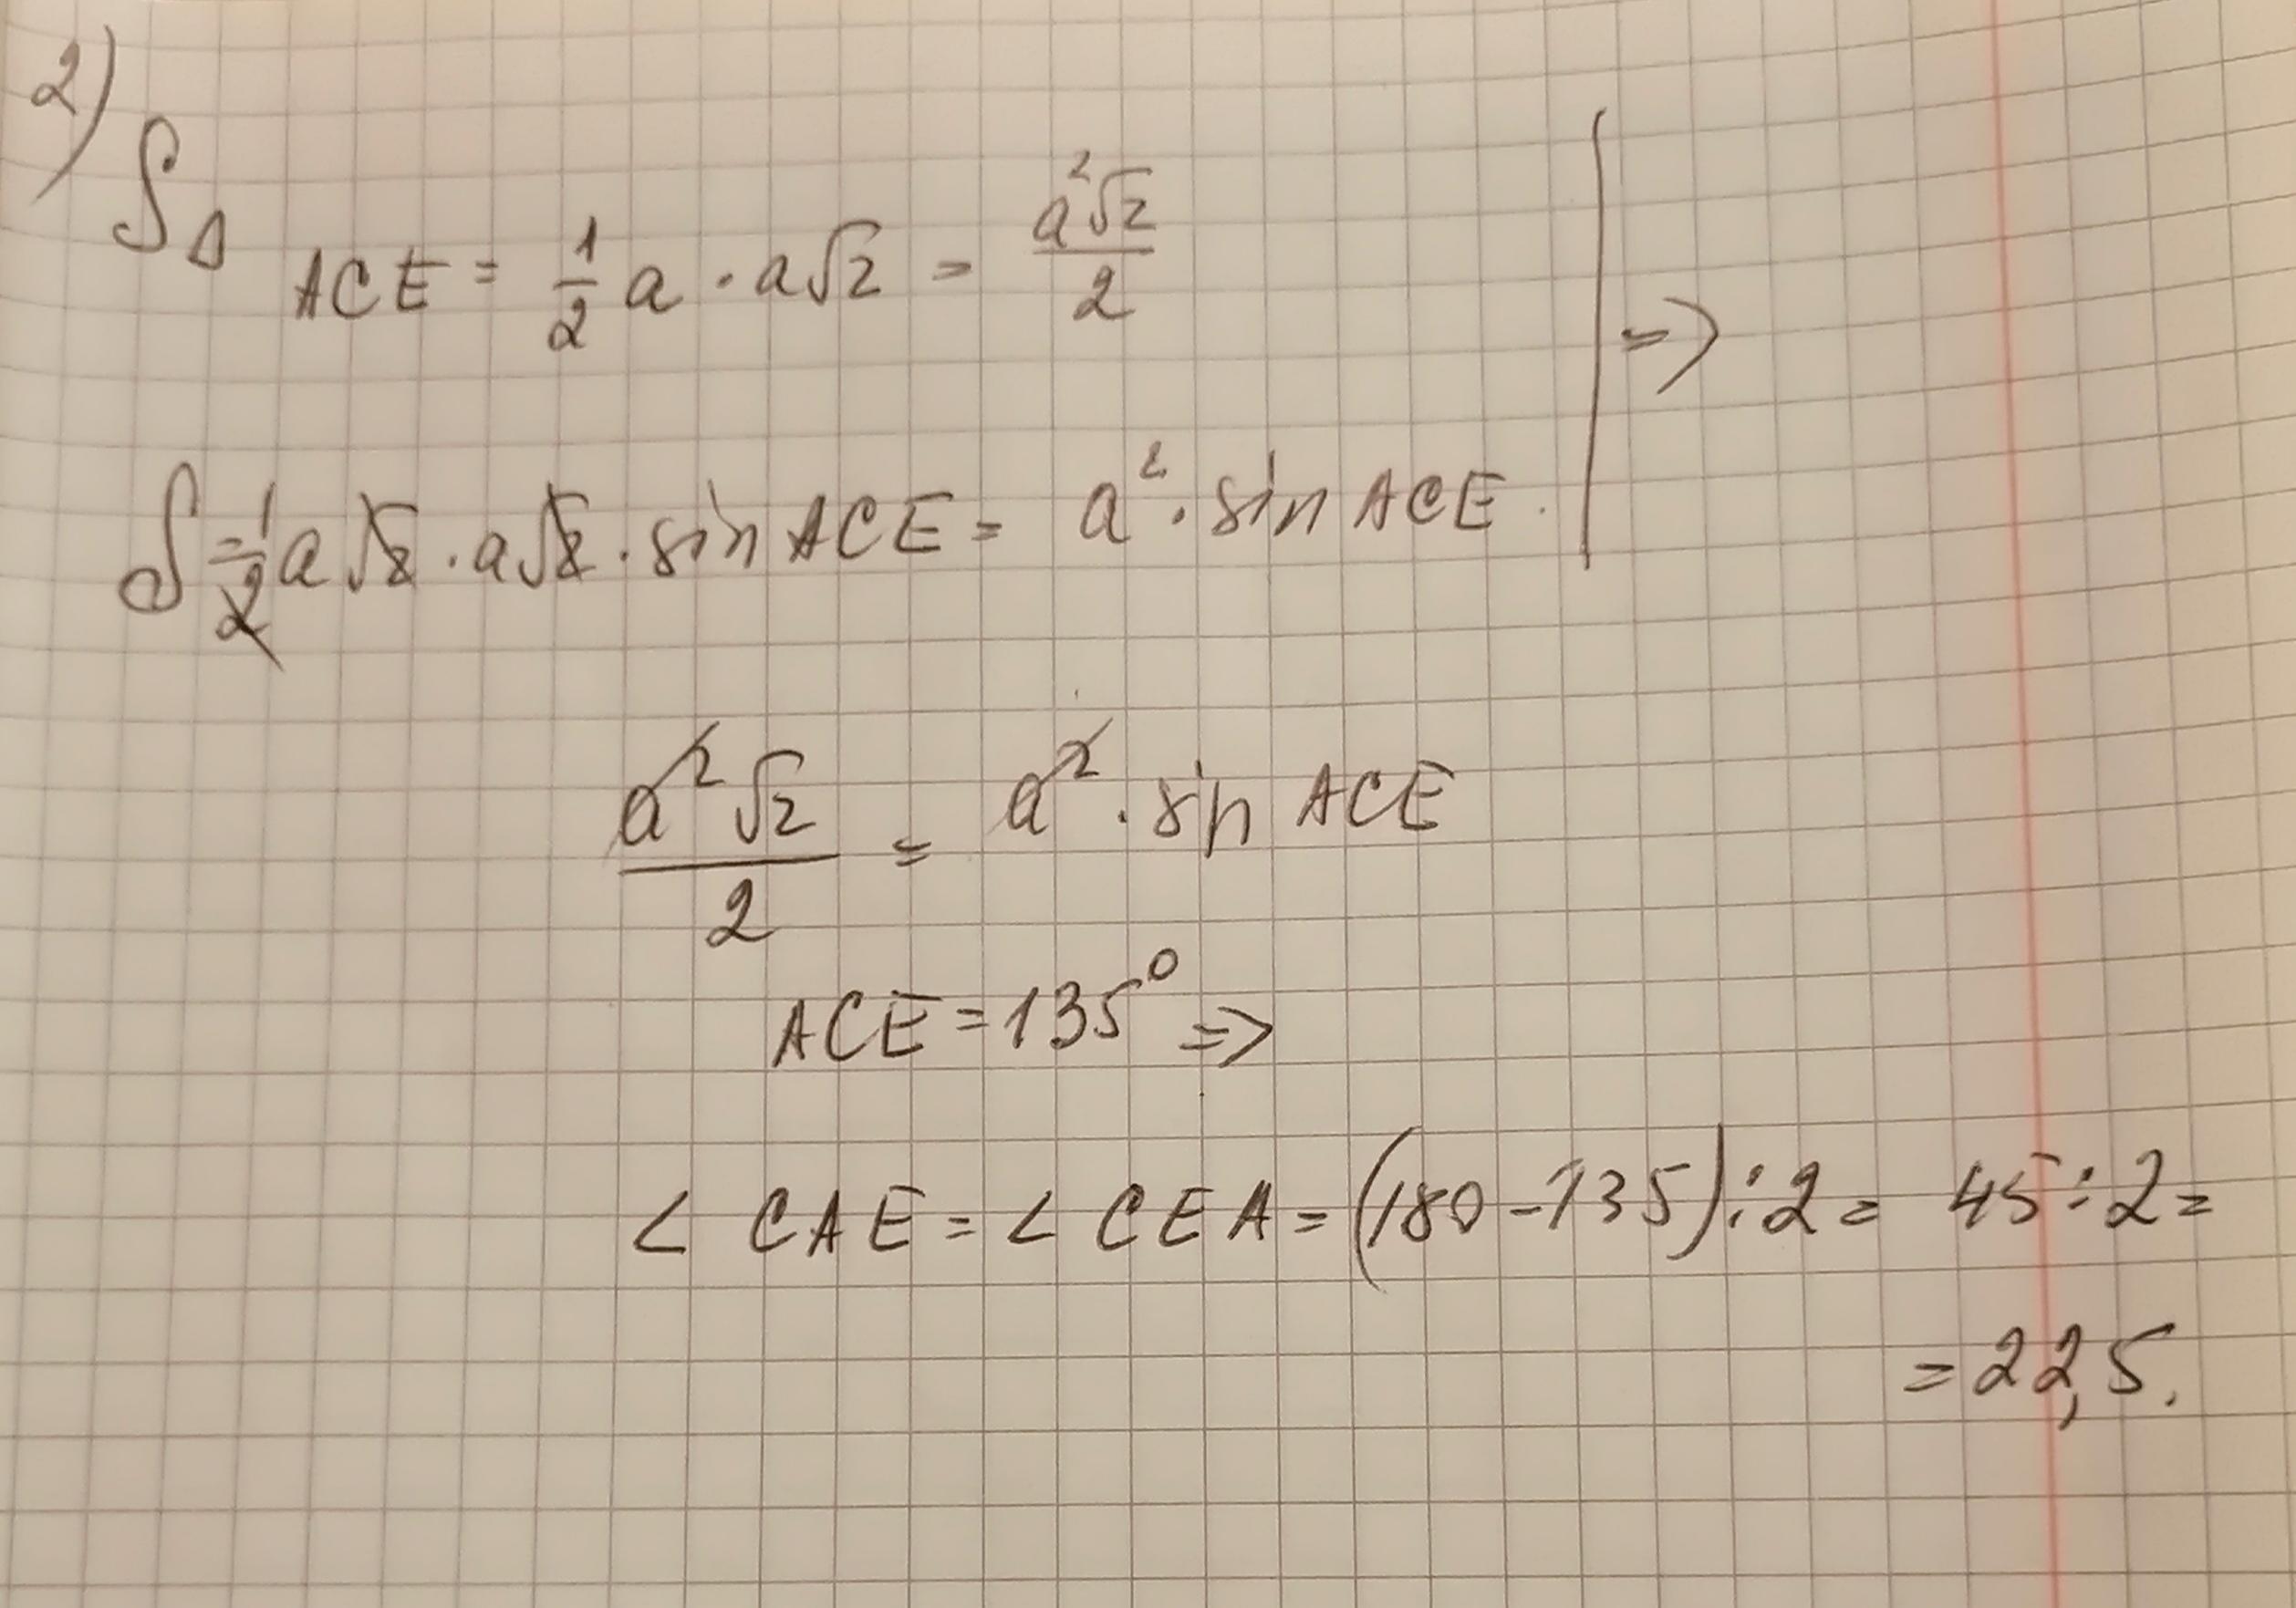 2)
S△ ACE = 1/2 a · a√2 = a²√2/2
=>
S = 1/2 a√2 · a√2 · sin ACE = a² · sin ACE.
a²√2/2 = a² · sin ACE
ACE = 135° =>
∠ CAE = ∠ CEA = (180 - 135) : 2 = 45 : 2 =
= 22,5.